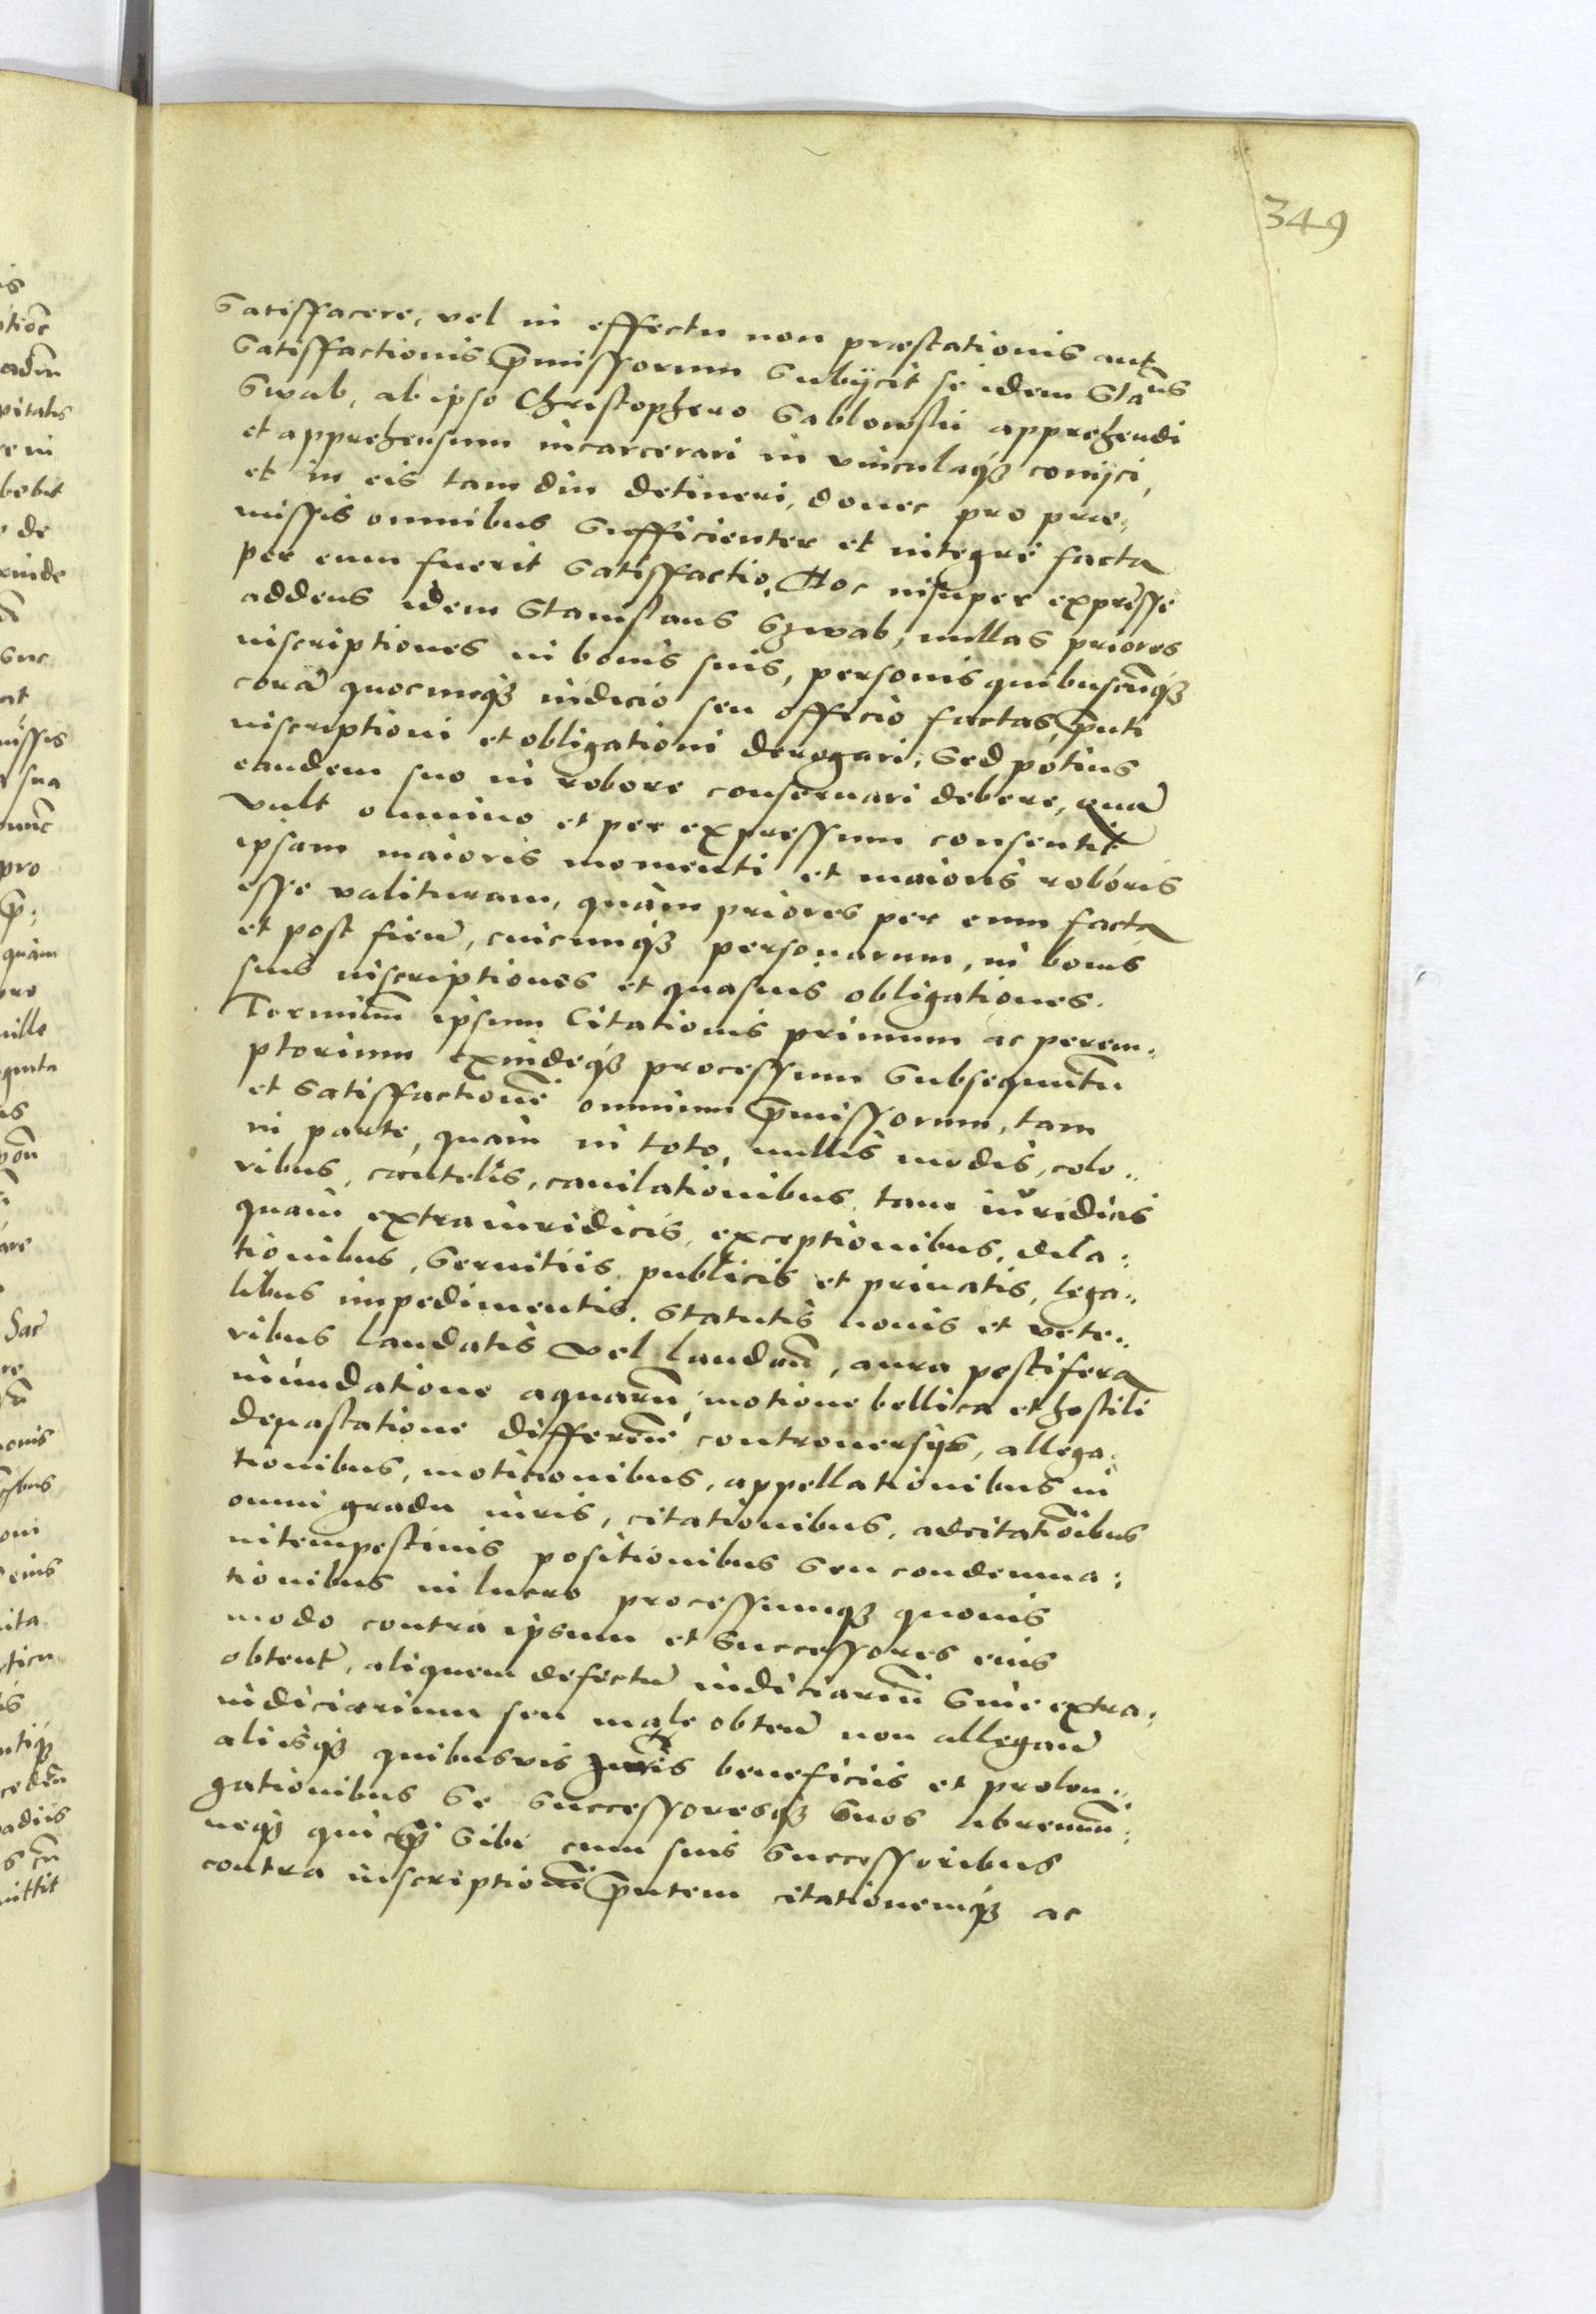 349
Satisfacere, vel in effectu non præstationis aut
Satisfactionis p̃missorum Subijcit se idem Stãus
Swab, ab ipso Christophero Sablowski apprehendi
et apprehensum incarcerari in vinculaqꝫ conijci,
et in eis tam diu detineri, donec pro præ:
missis omnibus Sufficienter et integrè facta
per eum fuerit Satisfactio. Hoc insuper expresse
addens idem Stanislaus Szwab, nullas priores
inscriptiones in bonis suis, personis quibuscũqꝫ
corã quocunqꝫ iudicio seu officio factas, p̃nti
inscriptioni et obligationi derogari, Sed potius
eandem suo in robore conseruari debere, quã
vult omnino et per expressum consentit
ipsam maioris momenti et maioris roboris
esse valituram, quàm priores per eum facta
et post fien̄, cuicunqꝫ personarum, in bonis
suis inscriptiones et quasuis obligationes.
Terminũ ipsum Citationis primum ac perem:
ptorium exindeqꝫ processum Subsequutũ
et Satisfactionẽ omnium p̃missorum, tam
in parte, quàm in toto, nullis modis, colo:
ribus, cautelis, cauilationibus, tam iuridicis
quàm extraiuridicis, exceptionibus, dila:
tionibus, Seruitiis publicis et priuatis, lega:
libus impedimentis, Statutis nouis et vete:
ribus laudatis vel laudan̄, aura pestifera
inundatione aquarũ, motione bellica et hostili
deuastatione differen̄, controuersijs, allega:
tionibus, motionibus, appellationibus in
omni gradu iuris, citationibus, adcitatiõibus
intempestiuis positionibus Seu condemna:
tionibus in lucro processumqꝫ quouis
modo contra ipsum et Successores eius
obtent̃, aliquem defectũ iudiciariũ Siue extra:
iudiciarium seu male obten̄ non allegan̄
aliisqꝫ quibusuis Juris beneficiis et prolon:
gationibus Se Successoresqꝫ Suos
neqꝫ Sibi cum suis Successoribus
contra inscriptionẽ p̃ntem citationemqꝫ ac